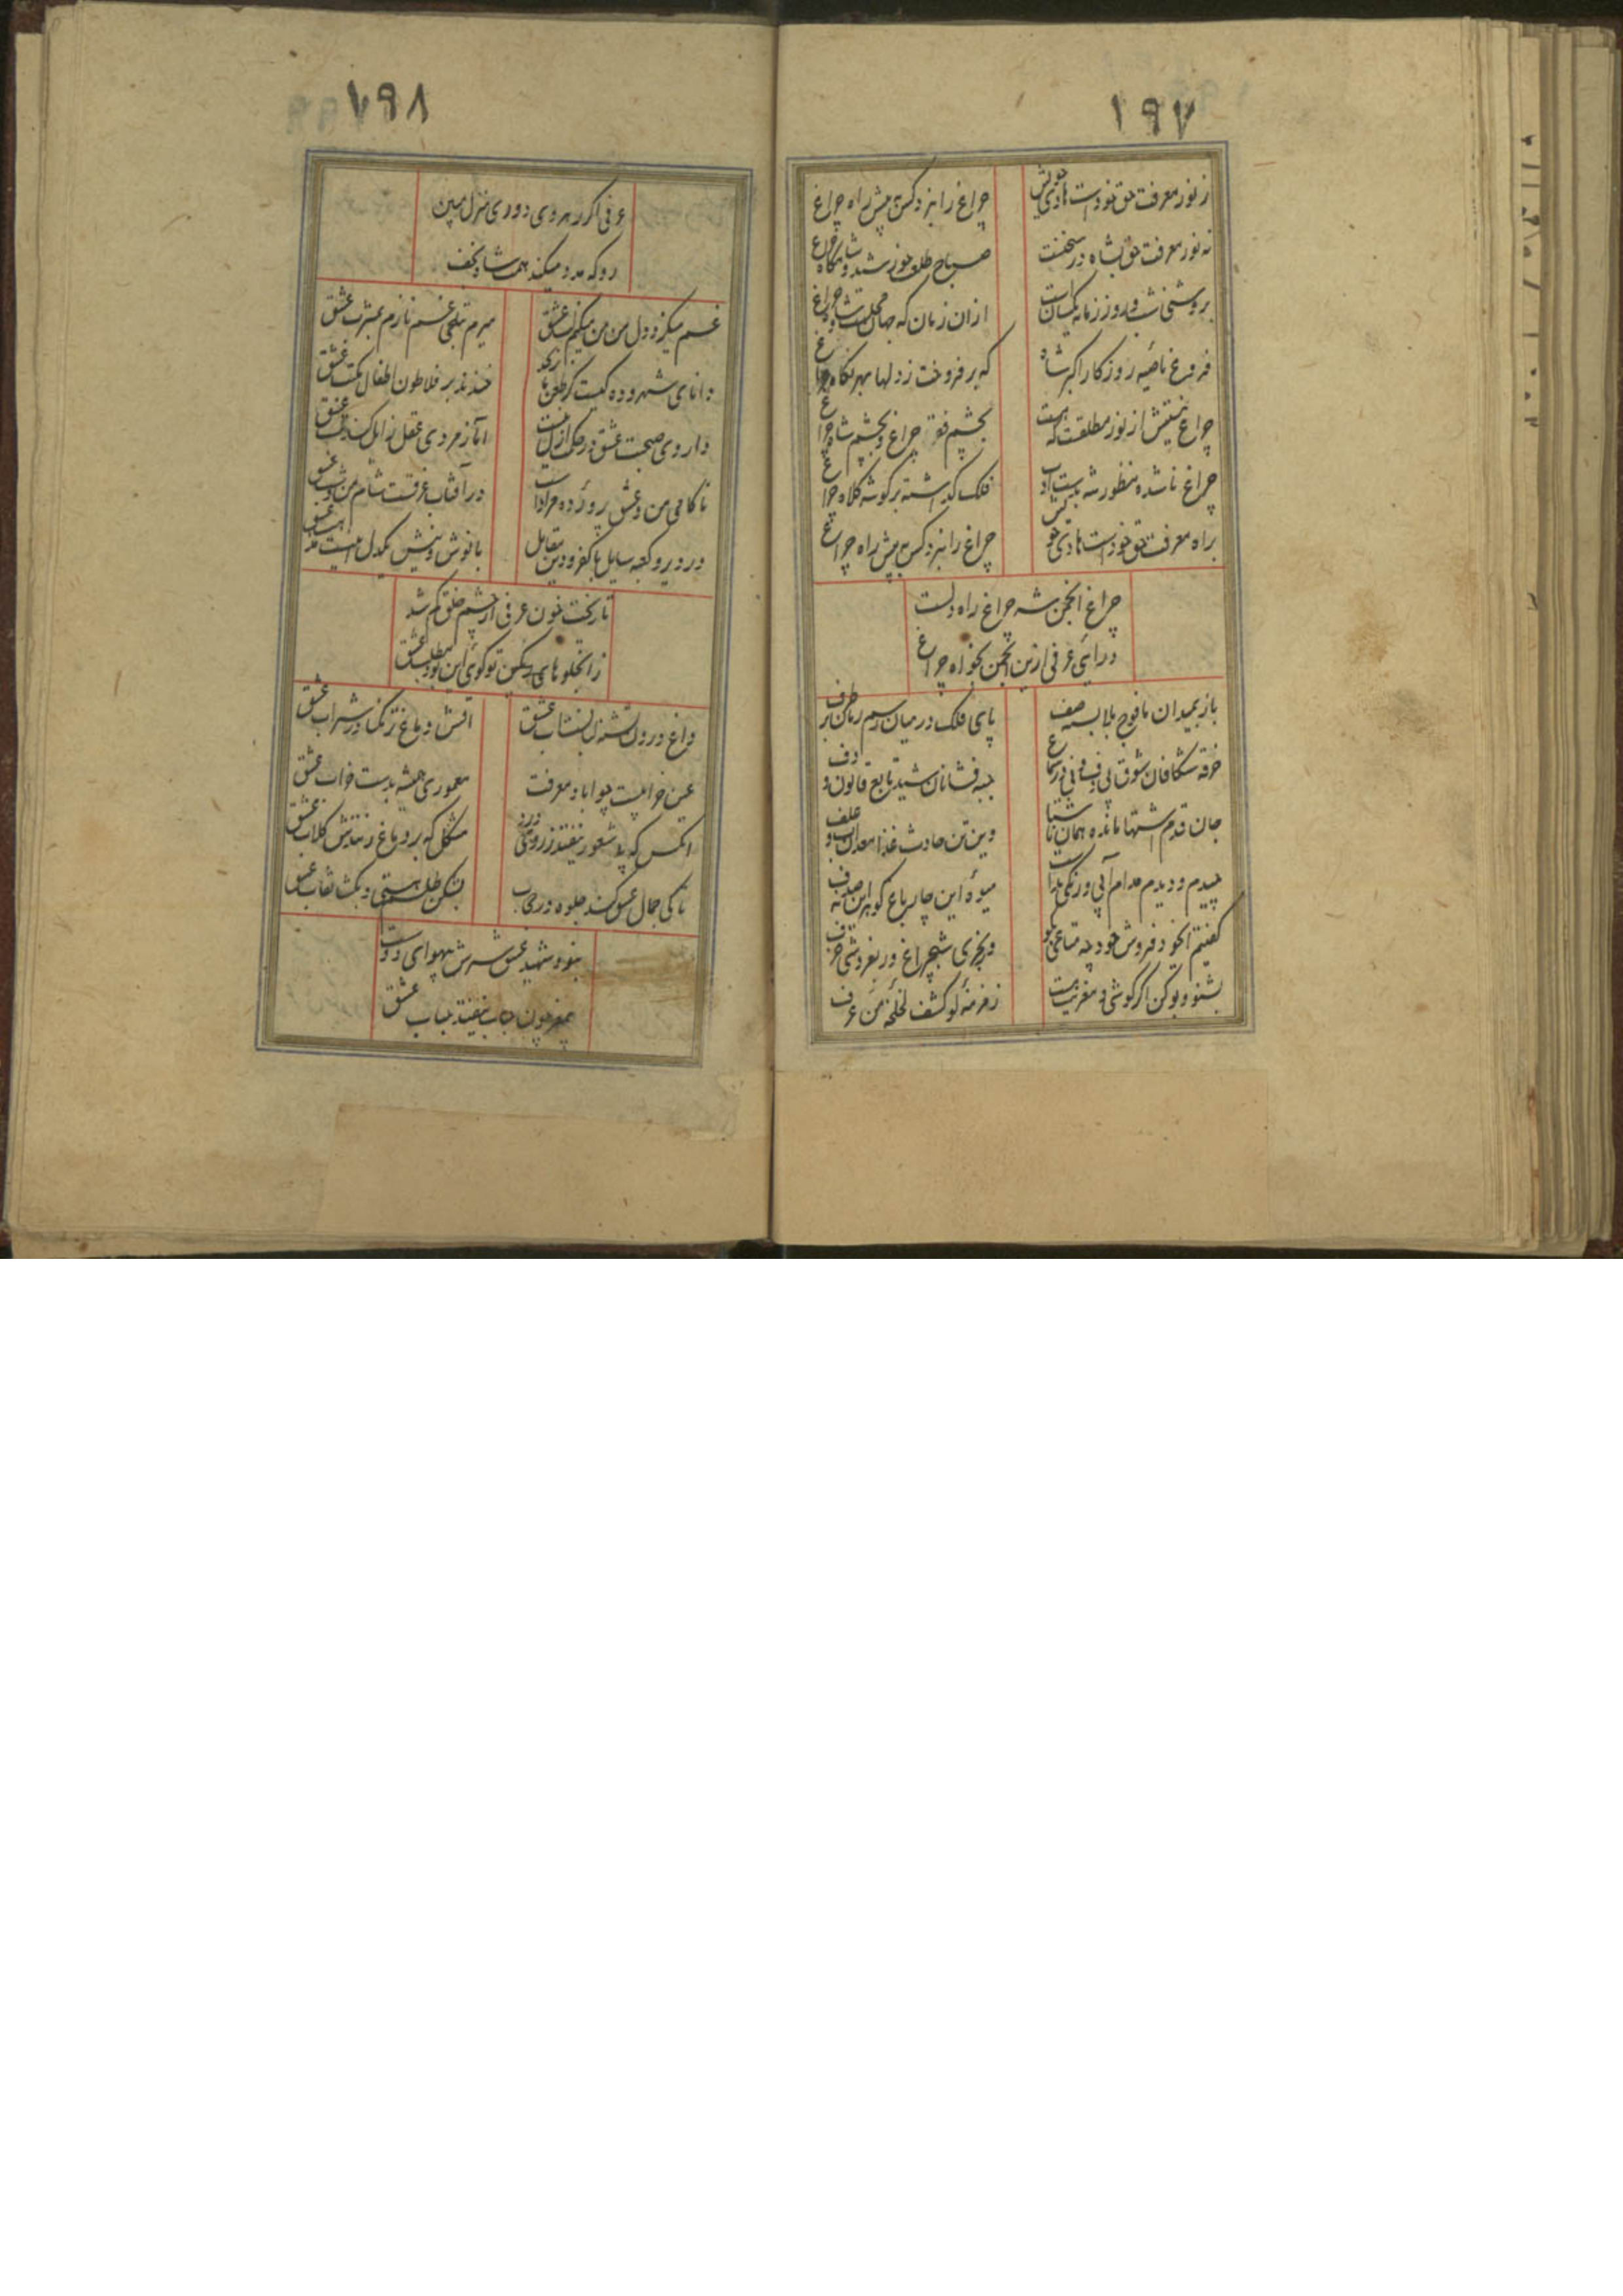 ۱۹۷
ز نور معرفت حق خود است هادی خویش
چراغ را نبرد کس به پیش راه چراغ
نه نور معرفت حق بشاه در سخنست
صباح طلعت خورشید و شامگاه چراغ
بروشنی شب و روز زمانه یکسانست
ازان زمان که جهان
فروغ ناصیه روزگار اکبر شاه
که بر فروخت ز دلها بهر نگاه چراغ
چراغ بینش از نور مطلقست که هست
بچشم فقر چراغ و بچشم شاه چراغ
چراغ ناشده منظور شه بدست ادب
فلک گذاشته بر گوشه کلاه چراغ
براه معرفت حق خود است هادی خویش
چراغ را نبرد کس به پیش راه چراغ
چراغ انجمن شه چراغ راه دلست
درآی عرفی ازین انجمن بخواه چراغ
باز بمیدان ما فوج بلا بسته صف
پای فلک در میان رسم امان بر طرف
خرقه شکافان شوق بی دف و نی در سماع
جبه فشانان شید تابع قانون و دف
جان قدم اشتها مانده همان ناشتا
وین تن حادث غذا معدن آب و علف
چیدم و دیدم مدام آبی و رنگی نداشت
میوه این چار باغ گوهر این نه صدف
گفتیم انجو فروش خود چه متاعی بگو
ور بخری شبچراغ ور بفروشی خزف
بشنو و بو کن اگر گوشی و مغزیت هست
زمزمه لو کشف لخلخه من عرف
۱۹۸
عرفی اگر رهروی دوری منزل مبین
رو که مدد میکند همت شاه نجف
غم میگزد دل من من میگزم لب عشق
میرم بتلخی غم نازم بمشرب عشق
دانای شهر و ده کیست کز طعن ناز یکره
خندند بر فلاطون اطفال مکتب عشق
داروی صحبت عشق در حکم ازلست
اما ز مردی عقل زایل کند تب عشق
ناکامی من و عشق پرورده مراد است
در آفتاب غرقست شام من و شب عشق
در دیر و کعبه سایل با کفر و دین مقابل
با نوش و نیش یکدل اینست مذهب عشق
تا ریخت خون عرفی از چشم خلق گم شد
زانجلوهای رنگین تو گوئی این بود مطلب عشق
داغ درون تشنه دل تشناب عشق
آتش دماغ تر نکند در شراب عشق
عین خرابیست چو اباد معرفت
معموری همیشه بدست خراب عشق
انکس که بد شعور نیفتد ز روی درد
مشکل که بر دماغ زنندش گلاب عشق
تا کی جمال عشق کند جلوه در حجاب
بشکن طلسم هستی و بگشا نقاب عشق
نبود شهید عشق سرش بهوای دوست
بیمغز چون حباب نیفتد بباب عشق